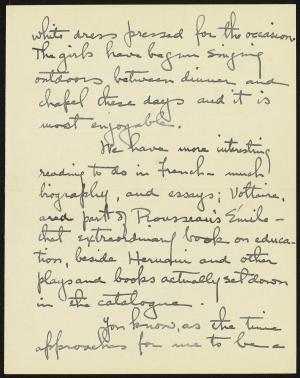 white dress pressed for the occasion.
The girls have begun singing
outdoors between dinner and
chapel these days and it is
most enjoyable.
We have more interesting
reading to do in French - much
biography, and essays; Voltaire,
and part of Rousseau's Emile -
that extraordinary book on educa-
tion, beside Hernani and other
plays and books actually set down
in the catalogue.
You know, as the time
approaches for me to be a